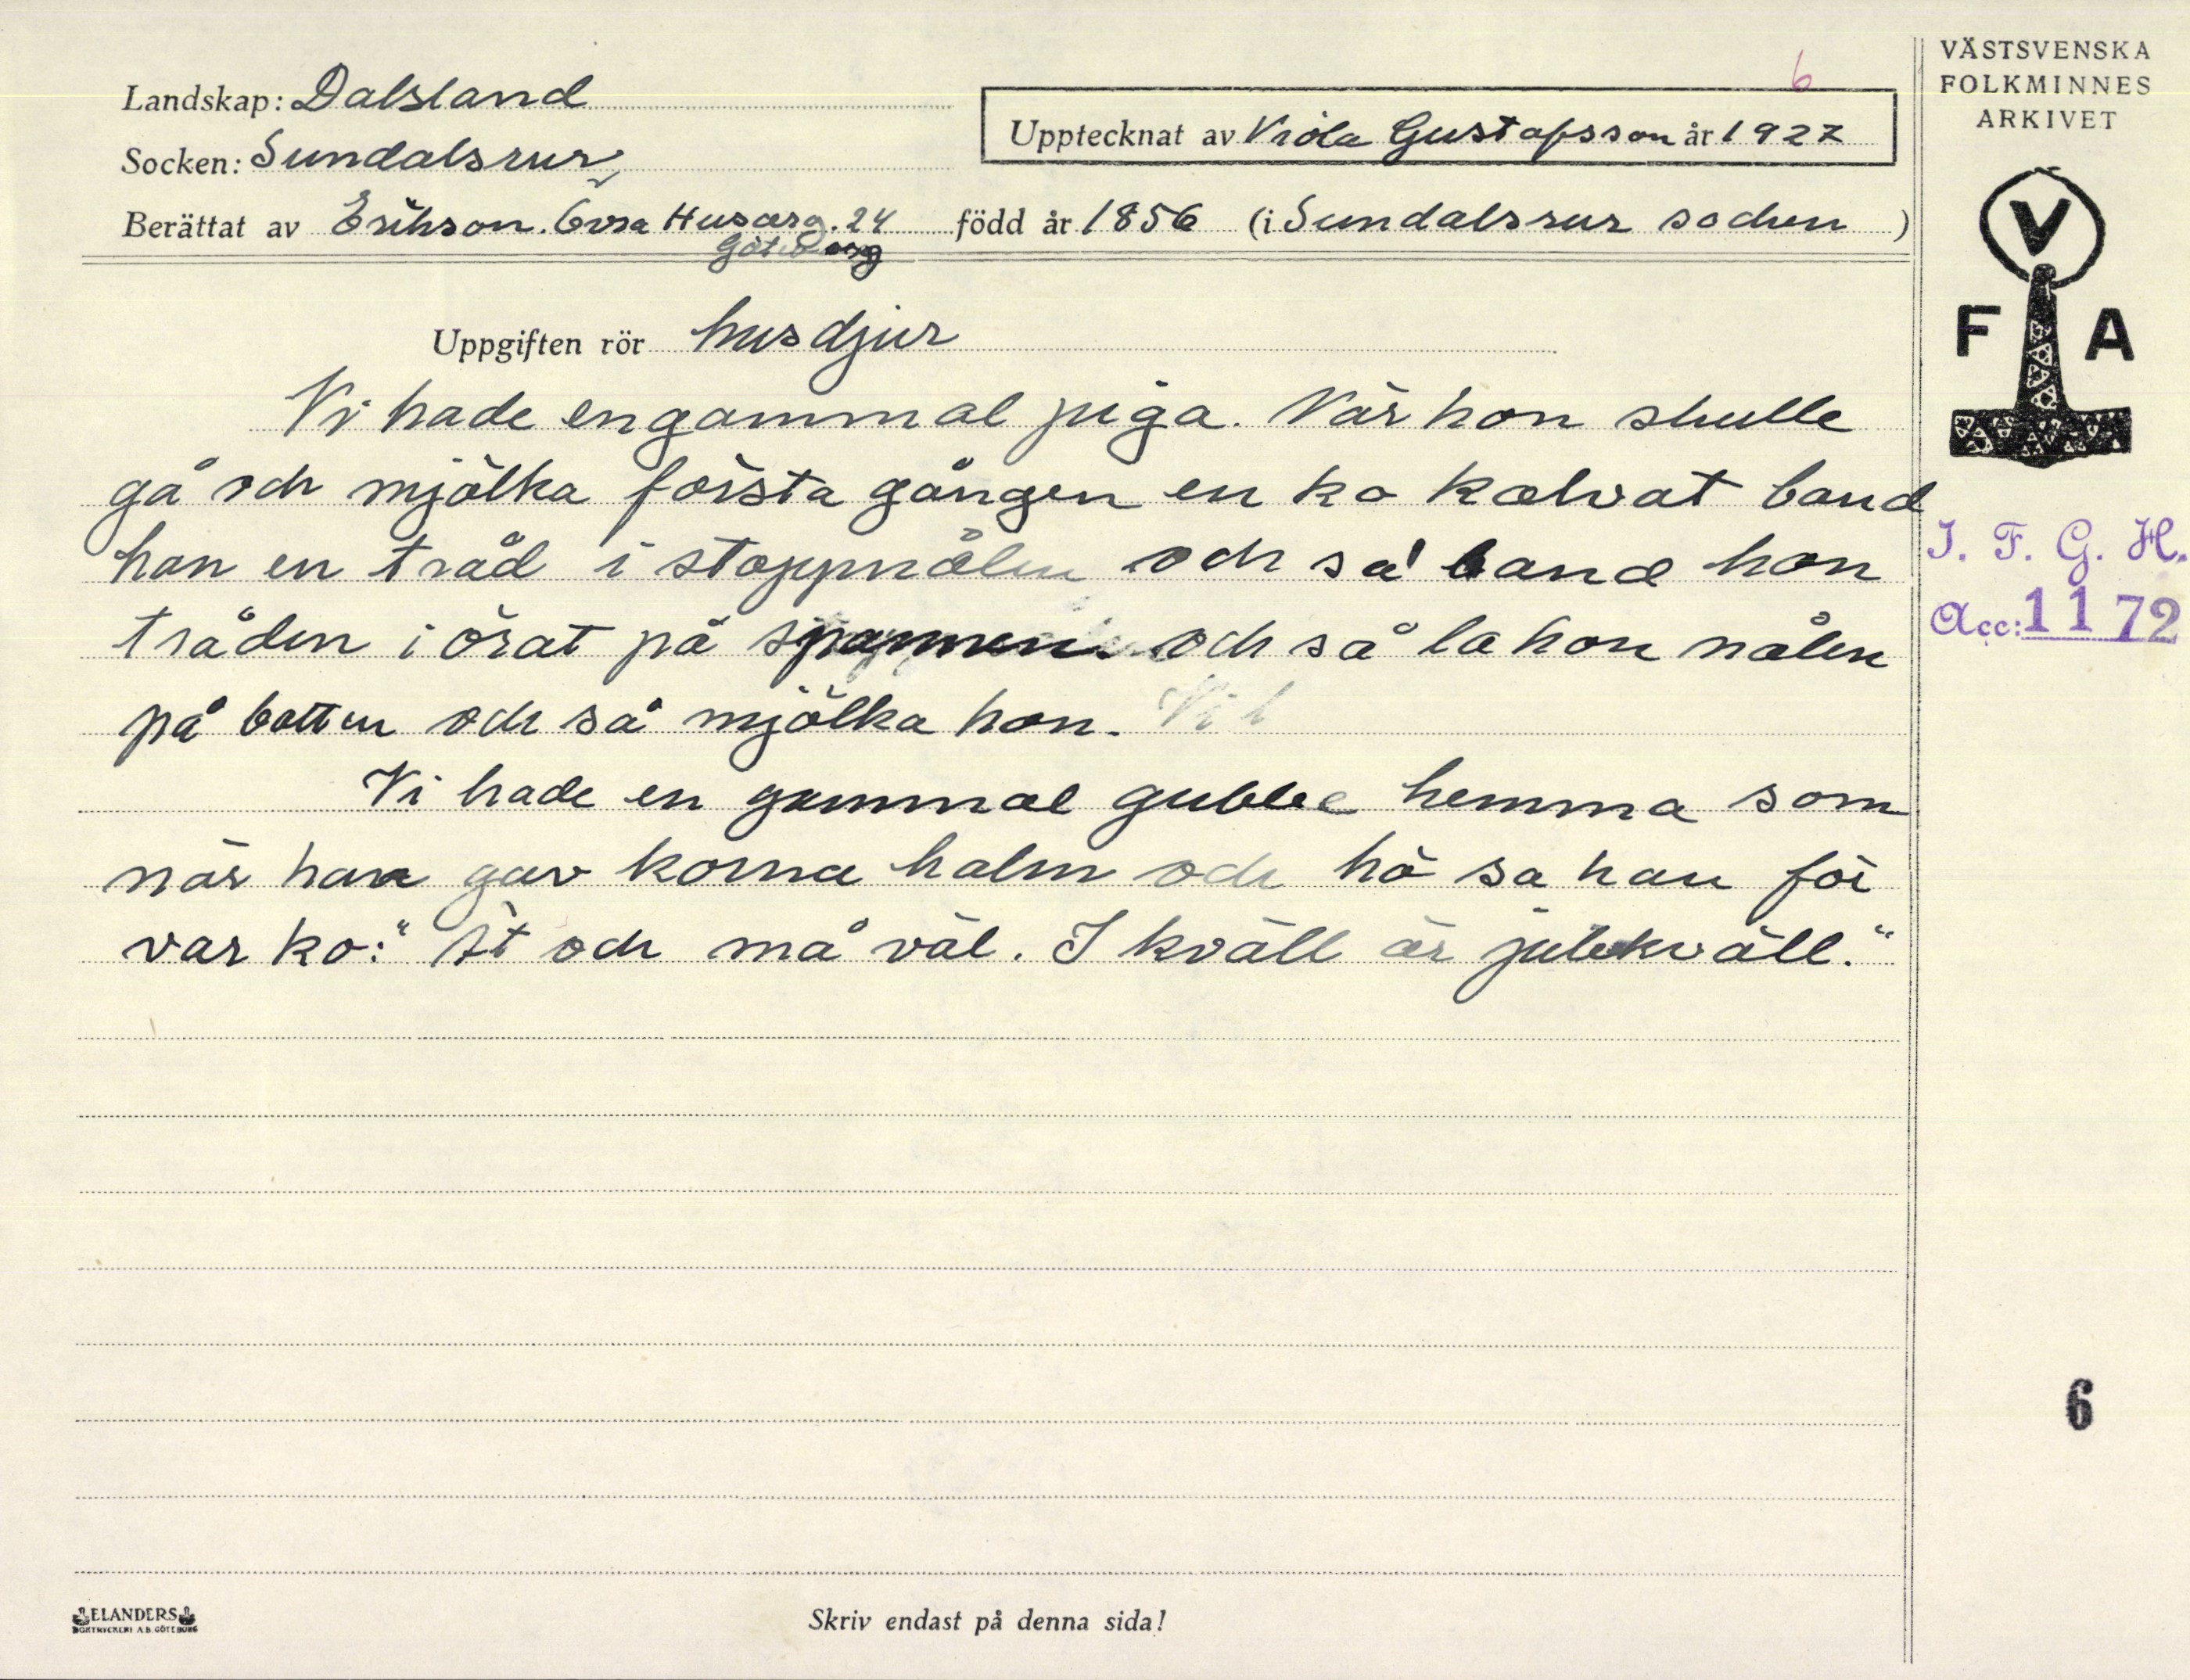 6
Landskap: Dalsland
Socken: Sundalsryr
Upptecknat av Viola Gustafsson år 1927
Berättat av Erikson. Övra Husarg. 24 född år 1856 (i Sundalsryr socken )
Göteborg
Uppgiften rör husdjur
Vi hade en gammal piga. När hon skulle
gå och mjölka första gången en ko kalvat band
hon en tråd i stoppnålen och så band hon
tråden i örat på spannen och så la hon nålen
på botten och så mjölka hon.
Vi hade en gammal gubbe hemma som
när han gav korna halm och hö sa han för
var ko: "Ät och må väl. I kväll är julekväll."
VÄSTSVENSKA
FOLKMINNES
ARKIVET
V
F A
I. F. G. H.
Acc: 1172
6
ELANDERS
BOKTRYCKERI A.B. GÖTEBORG
Skriv endast på denna sida!